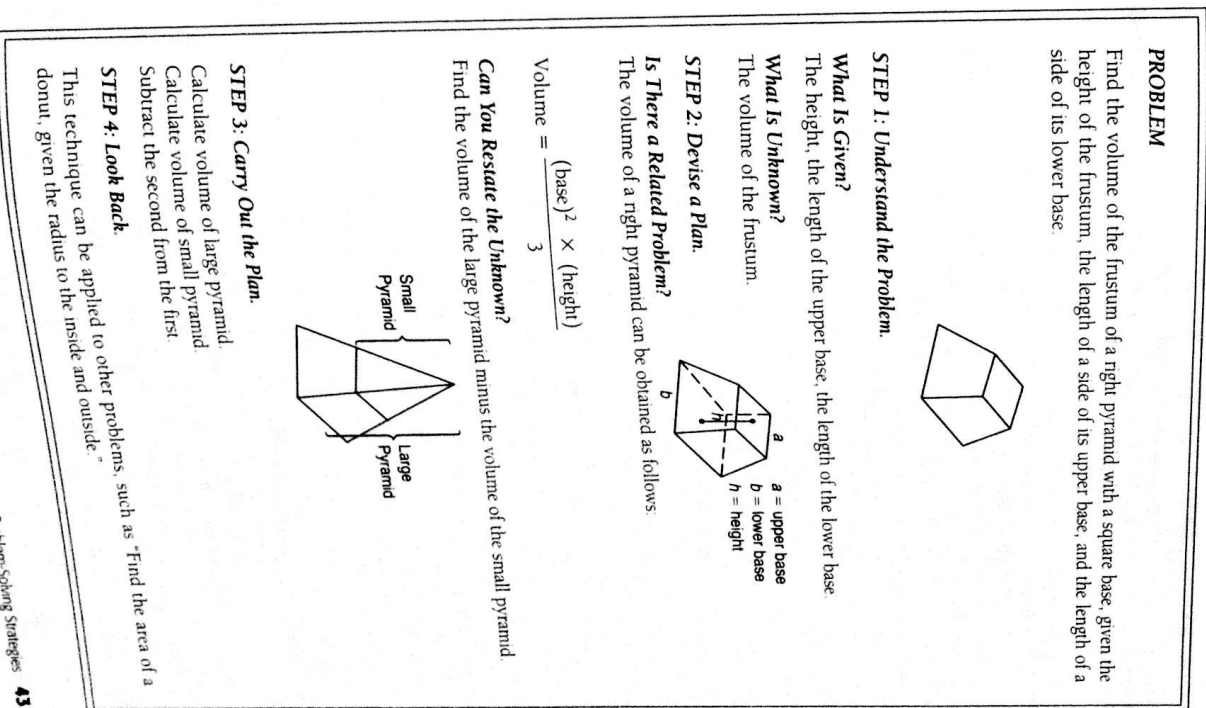 PROBLEM
Find the volume of the frustum of a right pyramid with a square base, given the
height of the frustum, the length of a side of its upper base, and the length of a
side of its lower base.
STEP 1: Understand the Problem.
What Is Given?
The height, the length of the upper base, the length of the lower base.
What Is Unknown?
The volume of the frustum.
a
h
b
a = upper base
b = lower base
h = height
STEP 2: Devise a Plan.
Is There a Related Problem?
The volume of a right pyramid can be obtained as follows:
Volume = (base)² × (height)
3
Can You Restate the Unknown?
Find the volume of the large pyramid minus the volume of the small pyramid.
Small
Pyramid
Large
Pyramid
STEP 3: Carry Out the Plan.
Calculate volume of large pyramid.
Calculate volume of small pyramid.
Subtract the second from the first.
STEP 4: Look Back.
This technique can be applied to other problems, such as "Find the area of a
donut, given the radius to the inside and outside."
Solving Strategies 43